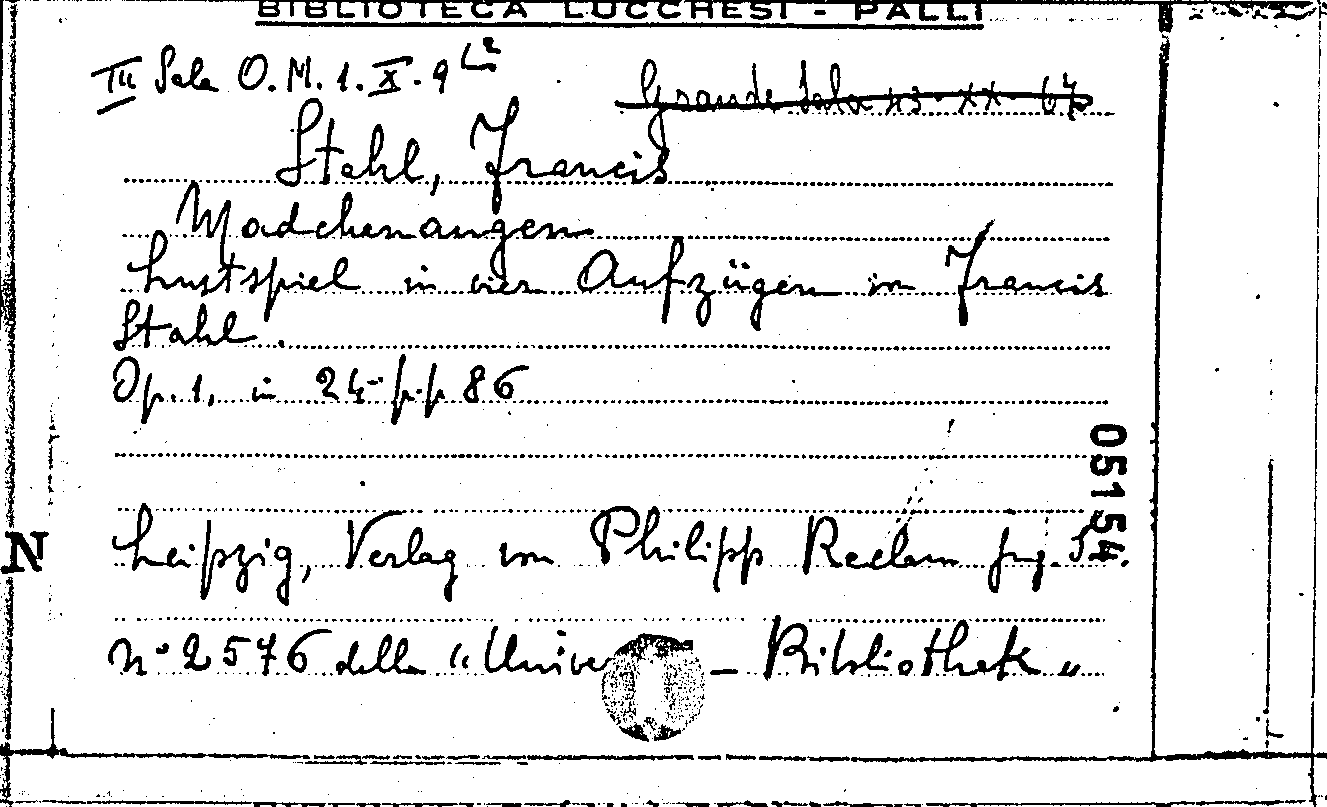 BIBLIOTECA LUCCHESI - PALLI
III Sala O.M.1.X.9
Grande Sala 43-XX-67
Stahl, Francis
Madchenaugen
Lustspiel in vier Aufzügen von Francis
Stahl.
Op. 1, in 24- p.p 86
05154
N
Leipzig, Verlag von Philipp Reclam jug.
n° 2576 della "Unive - Bibliothek"